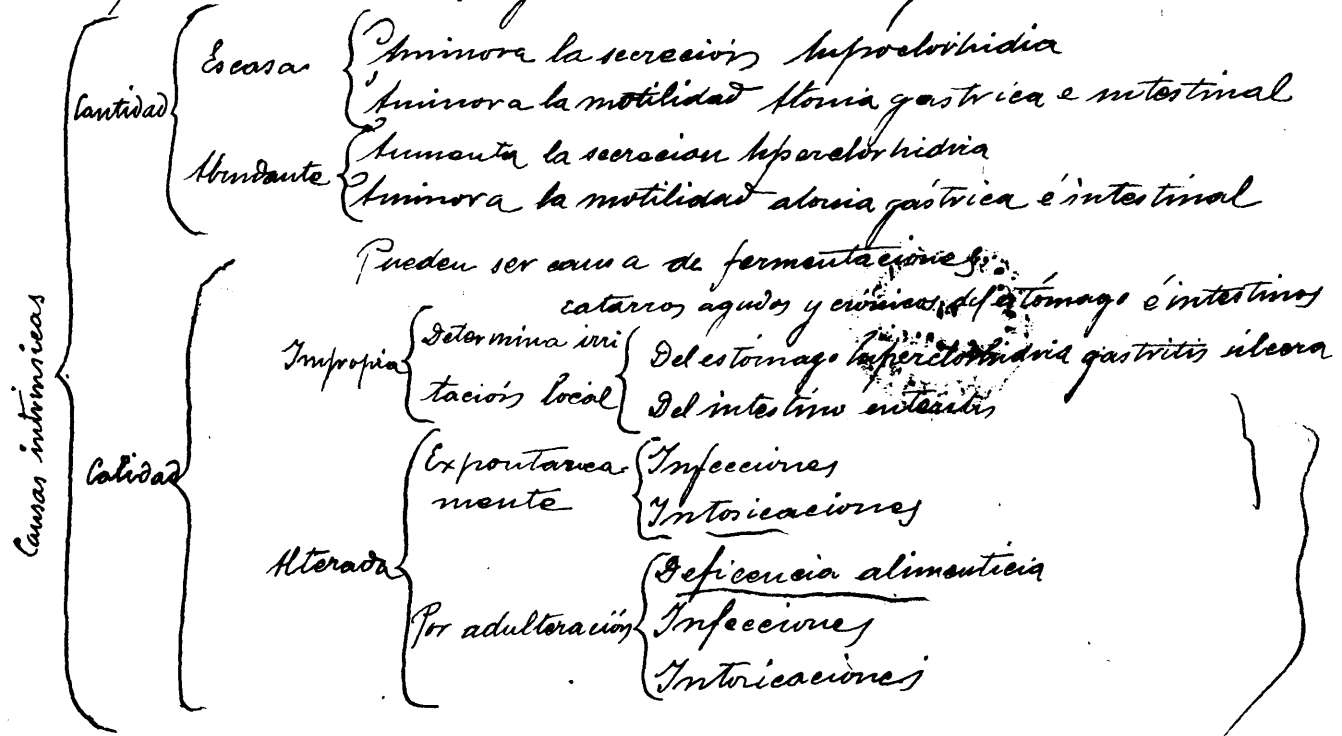 Causas intrinsicas
Cantidad
Escasa
Aminora la secreción hipoclorhidia
Aminora la motilidad atonia gastrica e intestinal
Abundante
Aumenta la secrecion hiperclorhidria
Aminora la motilidad atonia gástrica é intestinal
Calidad
Pueden ser causa de fermentaciones,
catarros agudos y crónicos del estómago é intestinos
Impropia
Determina irri
tación local
Del estómago hiperclorhidria gastritis úlcera
Del intestino enteritis
Alterada
Expontanea
mente
Infecciones
Intosicaciones
Por adulteración
Deficencia alimenticia
Infecciones
Intoxicaciones